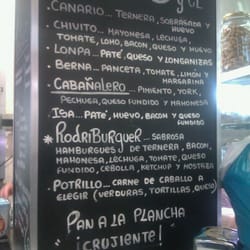 CANARIO... TERNERA, SOBRASADA Y HUEVO
CHIVITO... MAYONESA, LECHUGA,
TOMATE, LOMO, BACON, QUESO Y HUEVO
LONPA... PATÉ, QUESO Y LONGANIZAS
BERNA... PANCETA, TOMATE, LIMÓN Y
MARGARINA
CABAÑALERO... PIMIENTO, YORK,
PECHUGA, QUESO FUNDIDO Y MAHONESA
ISA... PATÉ, HUEVO, BACON Y QUESO
FUNDIDO
RODRIBURGUER... SABROSA
HAMBURGUES DE TERNERA, BACON,
MAHONESA, LECHUGA, TOMATE, QUESO
FUNDIDO, CEBOLLA, KETCHUP Y MOSTAZA
POTRILLO... CARNE DE CABALLO A
ELEGIR (VERDURAS, TORTILLAS, QUESO)
PAN A LA PLANCHA
¡CRUJIENTE!